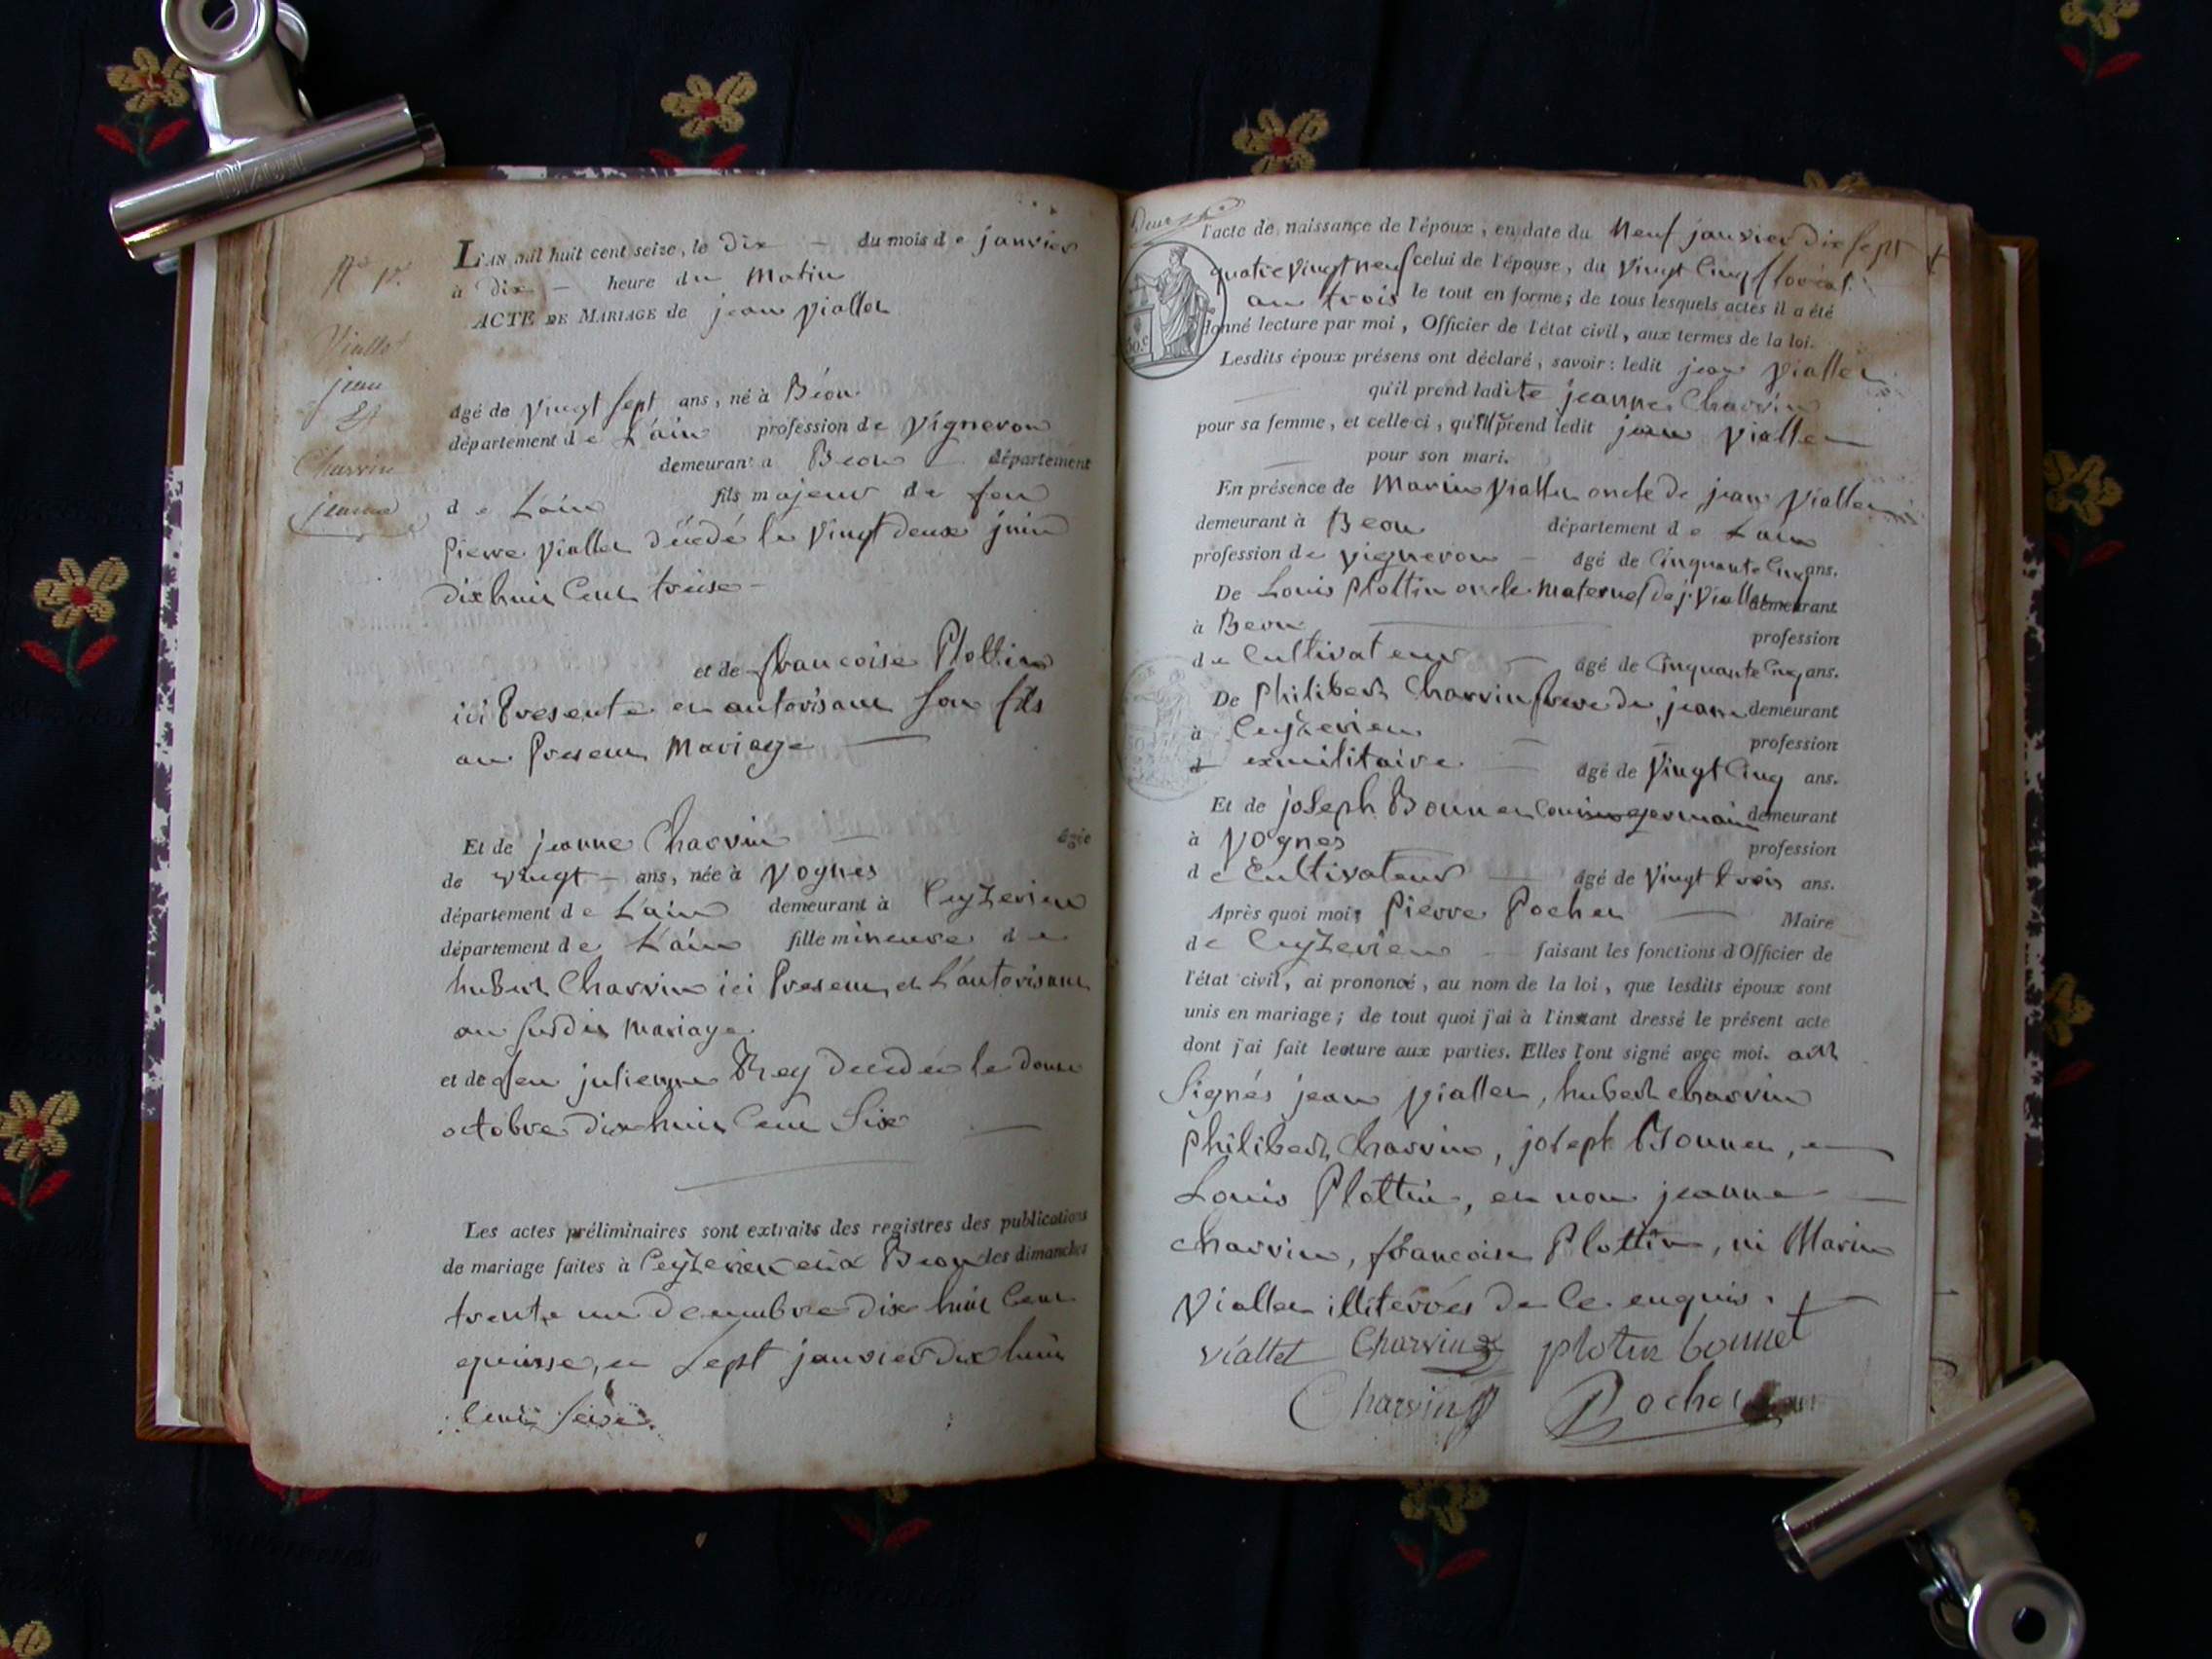 N° 1er
Viallet
jean
&
Charvin
jeanne
L'AN mil huit cent seize, le Dix — du mois de janvier
à Dix — heure du Matin
ACTE DE MARIAGE de jean Viallet
âgé de Vingt Sept ans, né à Béon
département de L'ain profession de Vigneron
demeurant à Beon — département
de Lain fils majeur de feu
Pierre Viallet Décédé le Vingt deux juin
dixhuit Cent treise —
et de francoise Plottin
ici Presente et autorisant Son fils
au Present Mariage —
Et de jeanne Charvin — âgée
de vingt — ans, née à Vognes
département de L'ain demeurant à Ceyzerieu
département de L'ain fille mineure de
hubert Charvin ici Present et L'autorisant
au Susdit Mariage
et de feu julienne Rey Decedée le douse
octobre dix huit Cent Six —
Les actes préliminaires sont extraits des registres des publications
de mariage faites à Ceyzerieu et à Beon les dimanches
trente un decembre dix huit Cent
quinse, et Sept janvier Dix huit
Cent Seise.
l'acte de naissance de l'époux, en date du Neuf janvier Dix Sept
quatre Vingt neuf celui de l'épouse, du Vingt Cinq floréal
an trois le tout en forme; de tous lesquels actes il a été
donné lecture par moi, Officier de l'état civil, aux termes de la loi.
Lesdits époux présens ont déclaré, savoir: ledit jean Viallet
qu'il prend ladite jeanne Charvin
pour sa femme, et celle ci, qu'ill prend ledit jean Viallet —
pour son mari.
En présence de Marin Viallet oncle de jean Viallet
demeurant à Beon département de Lain
profession de Vigneron — âgé de Cinquante Cinq ans.
De Louis Plottin oncle Maternel de j. Viallet demeurant
à Beon profession
de Cultivateur — âgé de Cinquante Cinq ans.
De Philibert Charvin frere de jeanne demeurant
à Ceyzerieu — profession
d exmilitaire — âgé de Vingt Cinq ans.
Et de joseph Bonnet Cousin germain demeurant
à Vognes profession
de Cultivateur — âgé de Vingt trois ans.
Après quoi moi, Pierre Pochet — Maire
de Ceyzerieu — faisant les fonctions d'Officier de
l'état civil, ai prononcé, au nom de la loi, que lesdits époux sont
unis en mariage; de tout quoi j'ai à l'instant dressé le présent acte
dont j'ai fait lecture aux parties. Elles l'ont signé avec moi.
Signés jean Viallet, hubert charvin
Philibert Charvin, joseph Bonnet, et —
Louis Plottin, et non jeanne —
charvin, francoise Plottin, ni Marin
Viallet illiterés de Ce enquis.
viallet Charvin plotin bonnet
Charvin Pochet